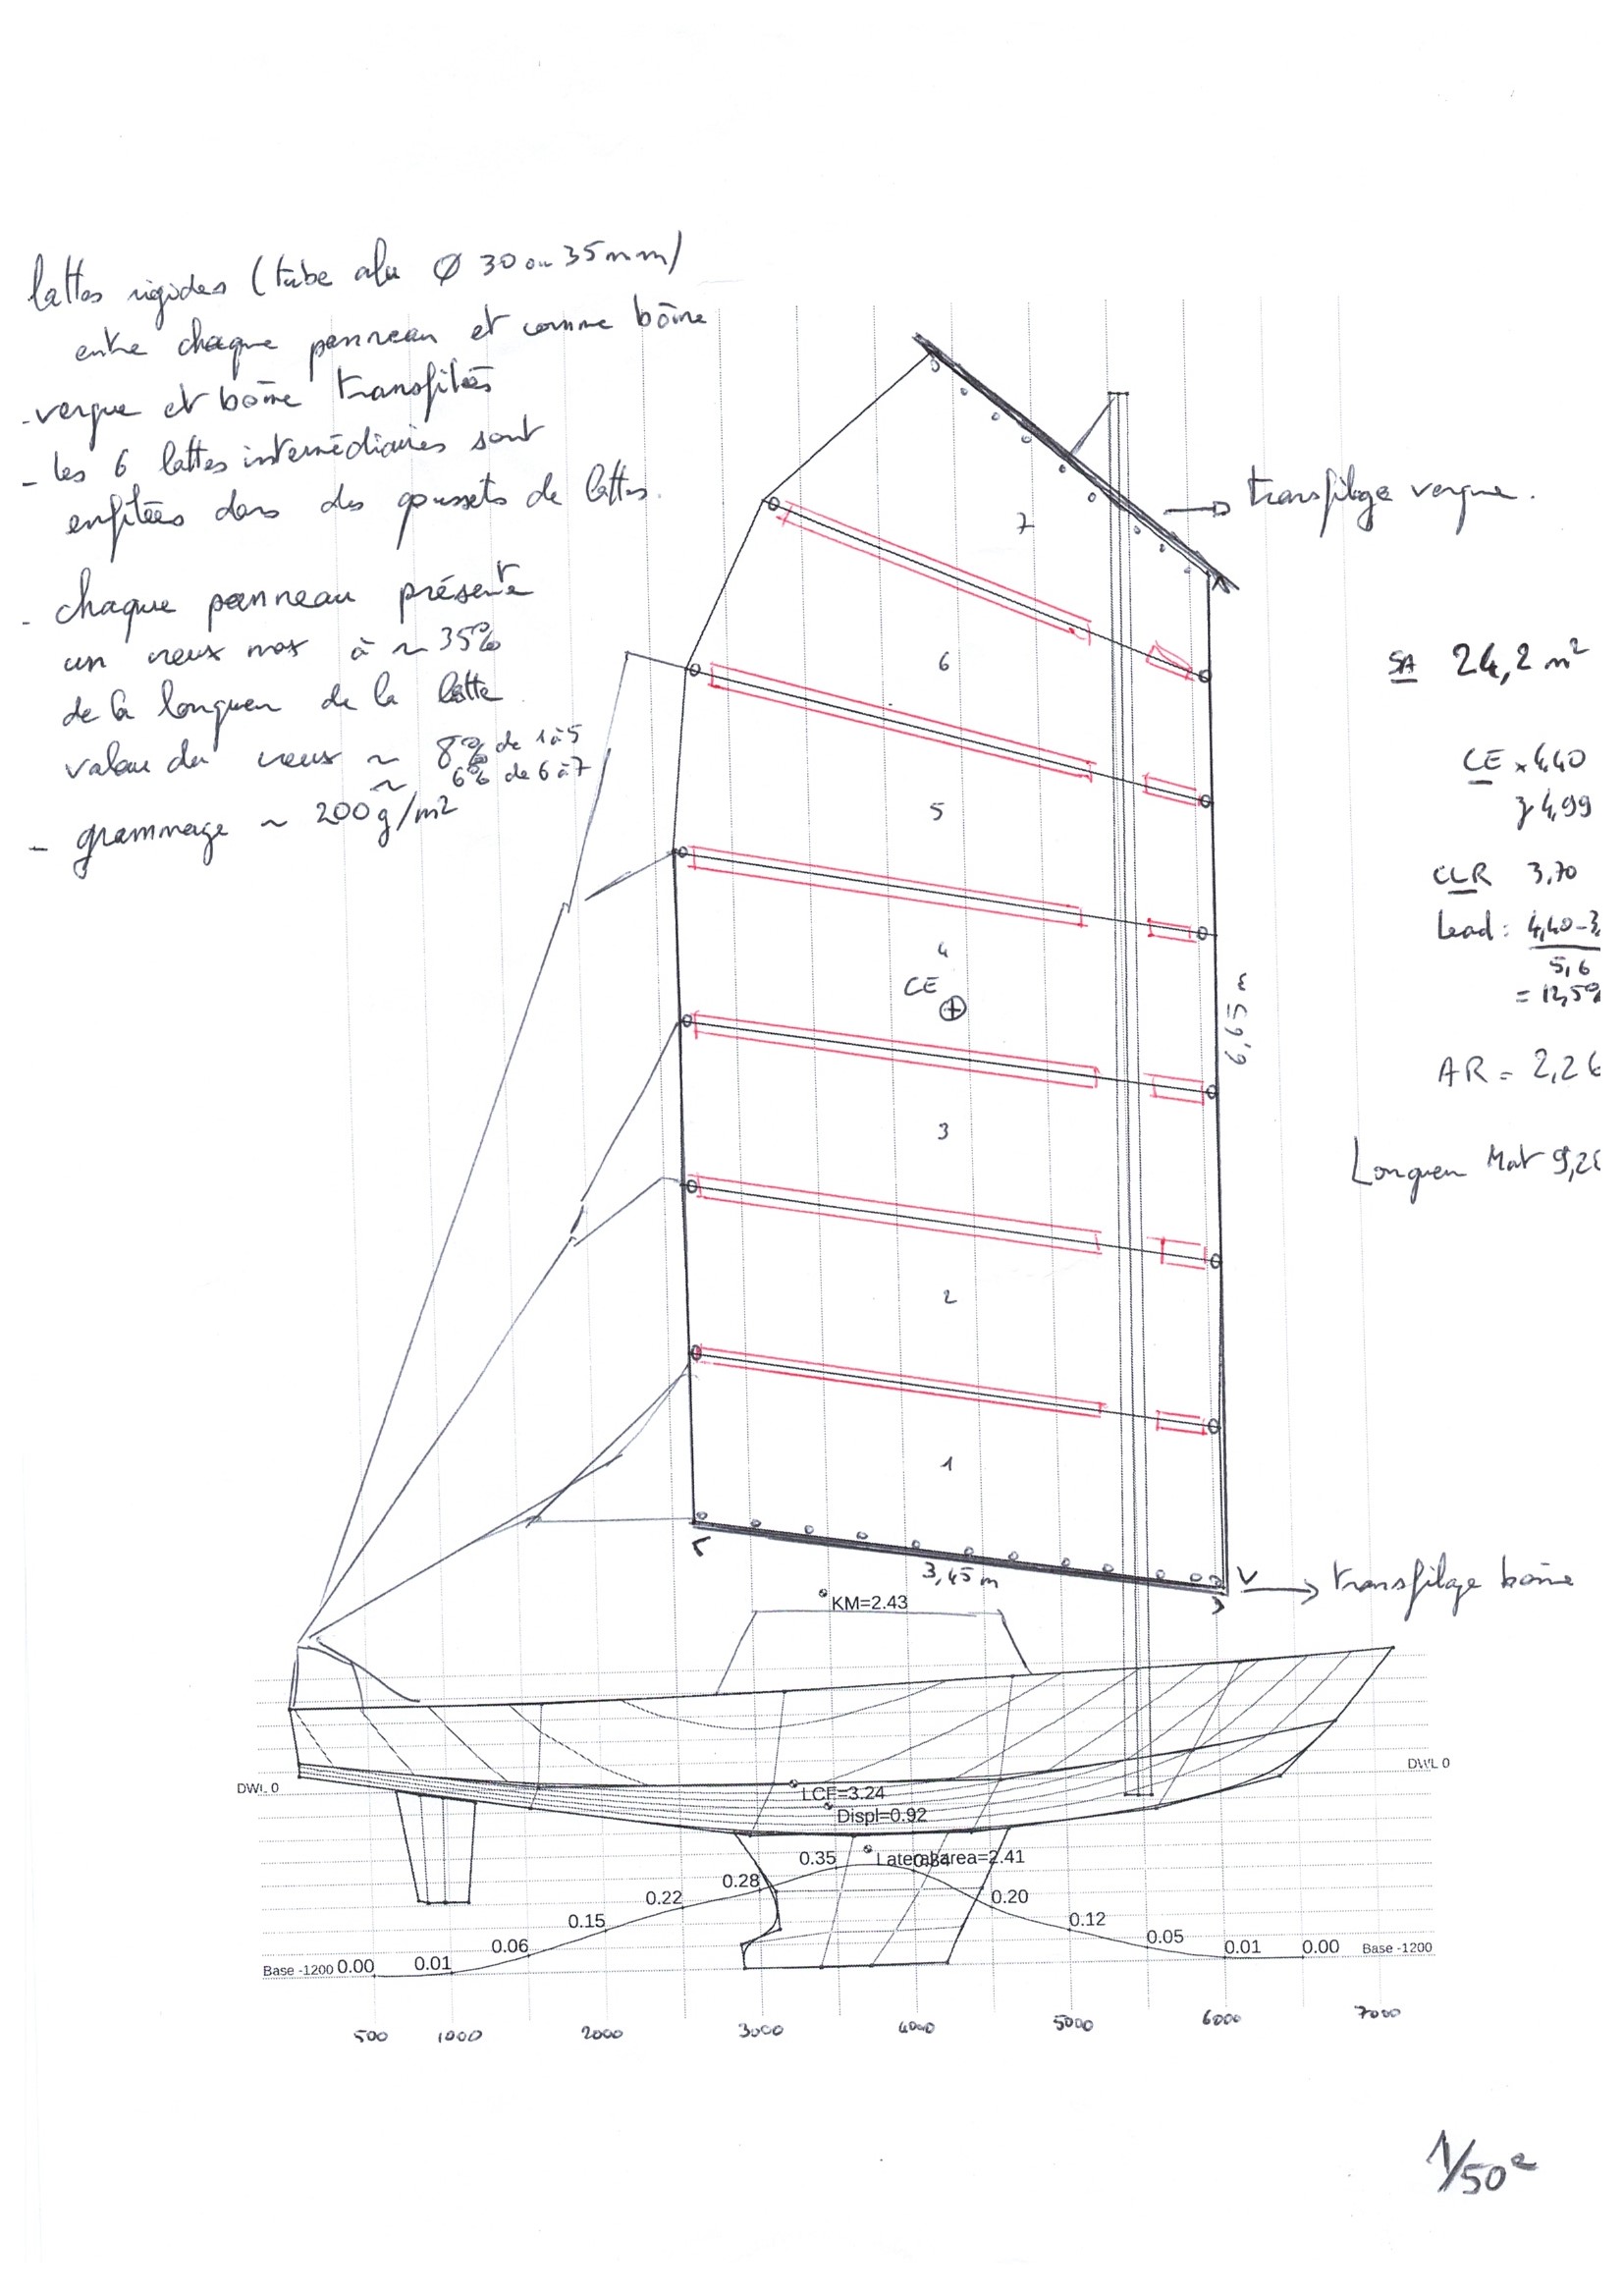 lattes rigides (tube alu Ø 30 ou 35mm)
entre chaque panneau et comme bôme
- vergue et bôme transfilées
- les 6 lattes intermédiaires sont
enfilées dans des goussets de lattes.
- chaque panneau présente
un creux max à ~ 35%
de la longueur de la latte
valeur du creux ~ 8% de 1 à 5
~ 6% de 6 à 7
- grammage ~ 200 g/m2
7
transfilage vergue.
6
5
4
CE
3
2
1
6,65 m
3,45 m
transfilage bôme
SA 24,2 m²
CE x 4,40
z 4,99
CLR 3,70
Lead : 4,40-3,
5,6
= 12,5%
AR = 2,26
Longueur Mat 9,2
KM=2.43
DWL 0
DWL 0
LCF=3.24
Displ=0.92
Lateral area=2.41
0.35
0.34
0.28
0.22
0.20
0.15
0.12
0.06
0.05
Base -1200
0.00
0.01
0.01
0.00
Base -1200
500
1000
2000
3000
4000
5000
6000
7000
1/50e